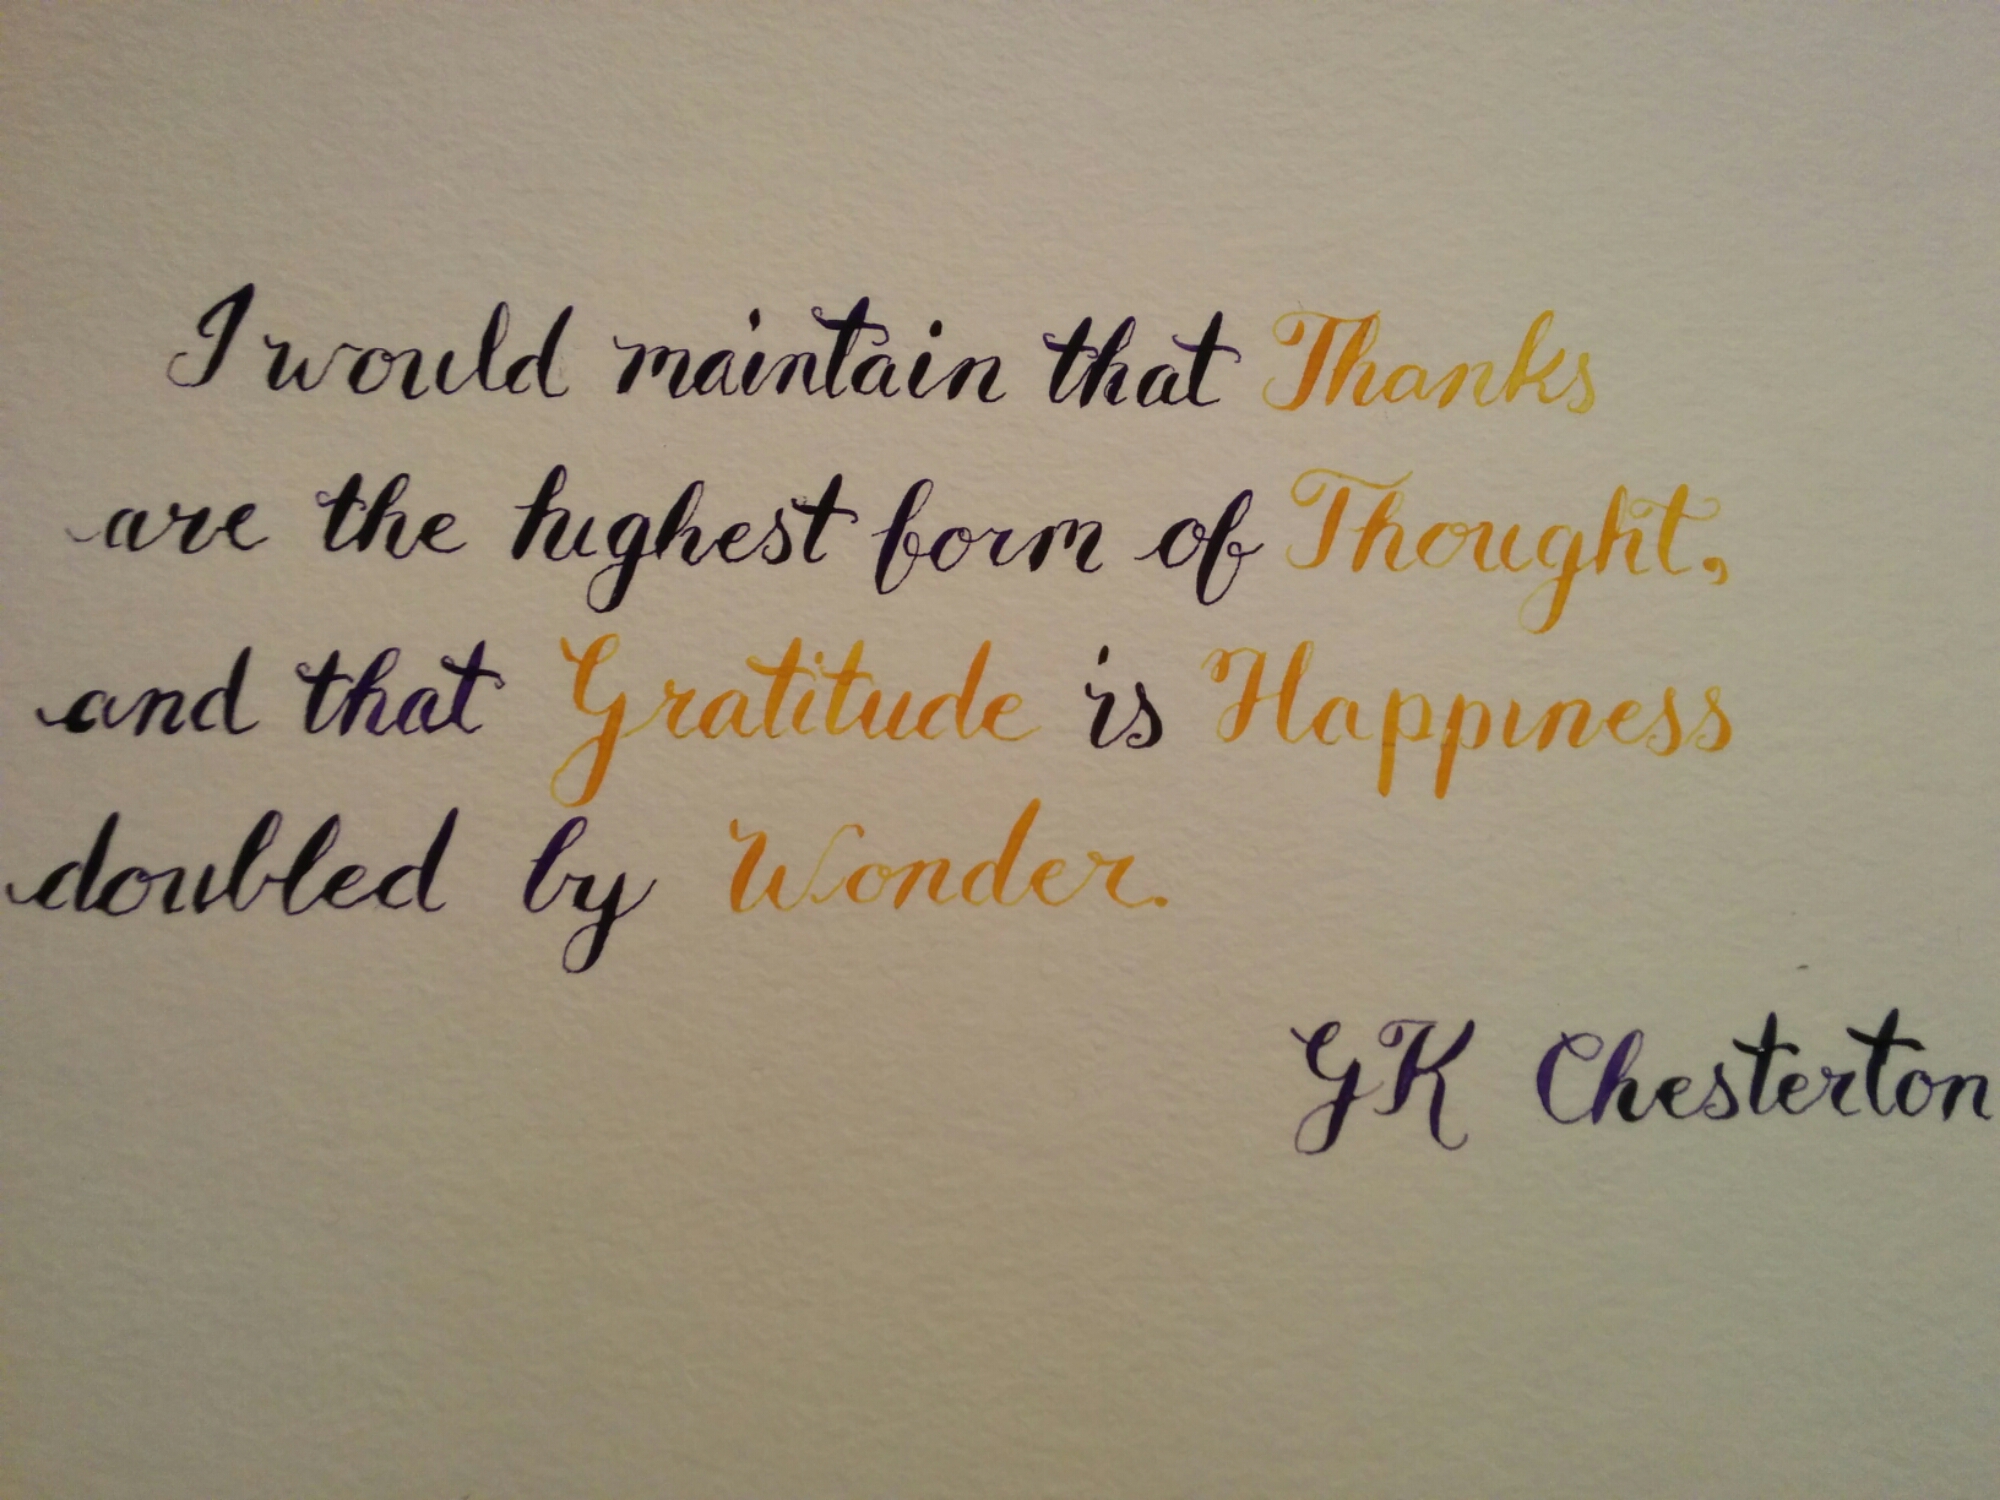 I would maintain that Thanks
are the highest form of Thought,
and that Gratitude is Happiness
doubled by Wonder.
GK Chesterton